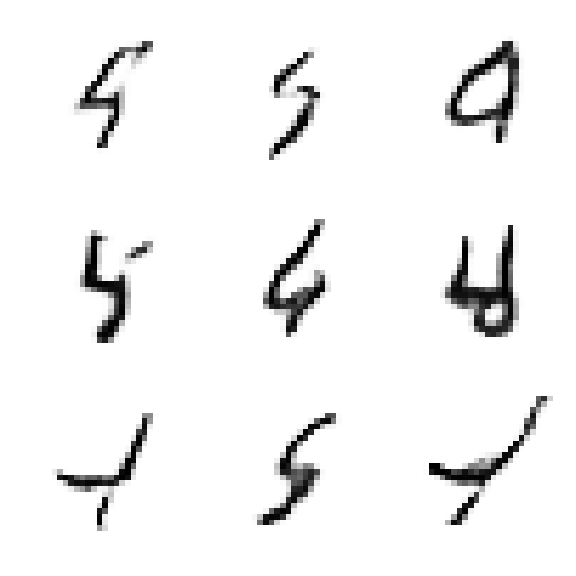 5 5 9
5 4
4 5 4